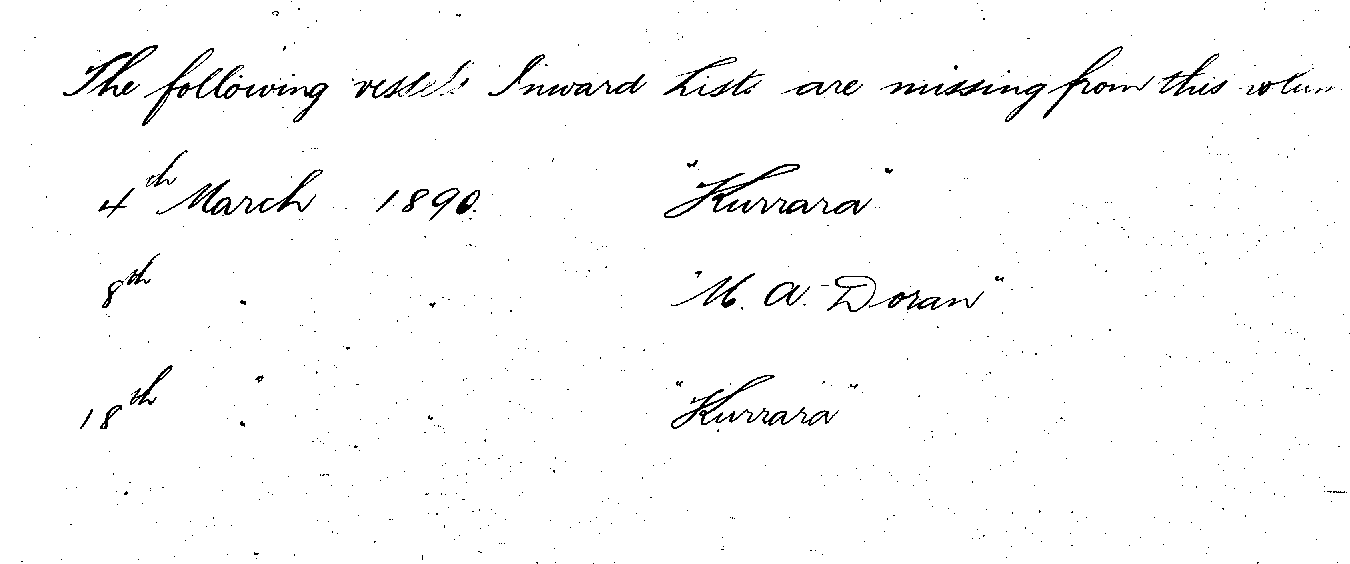 The following vessels Inward Lists are missing from this volum
4th March 1890. "Kurrara"
8th " " "M. A. Doran"
18th " " "Kurrara"